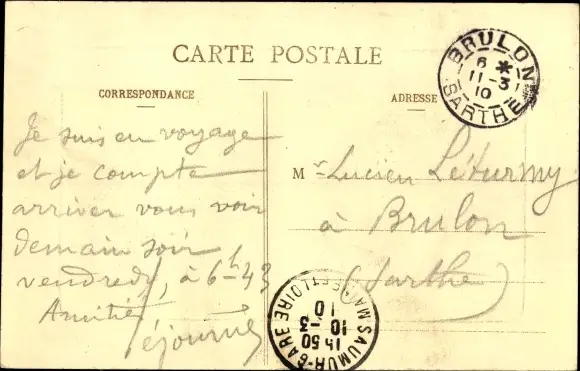 CARTE POSTALE
CORRESPONDANCE
ADRESSE
Je suis en voyage
et je compte
arriver vous voir
demain soir
vendredi, à 6h43
Amitiés
Mr Lucien
à Brulon
(Sarthe)
BRULON
6 *
11-3
10
SARTHE
SAUMUR-GARE
14 50
10-3
10
MAINE ET LOIRE